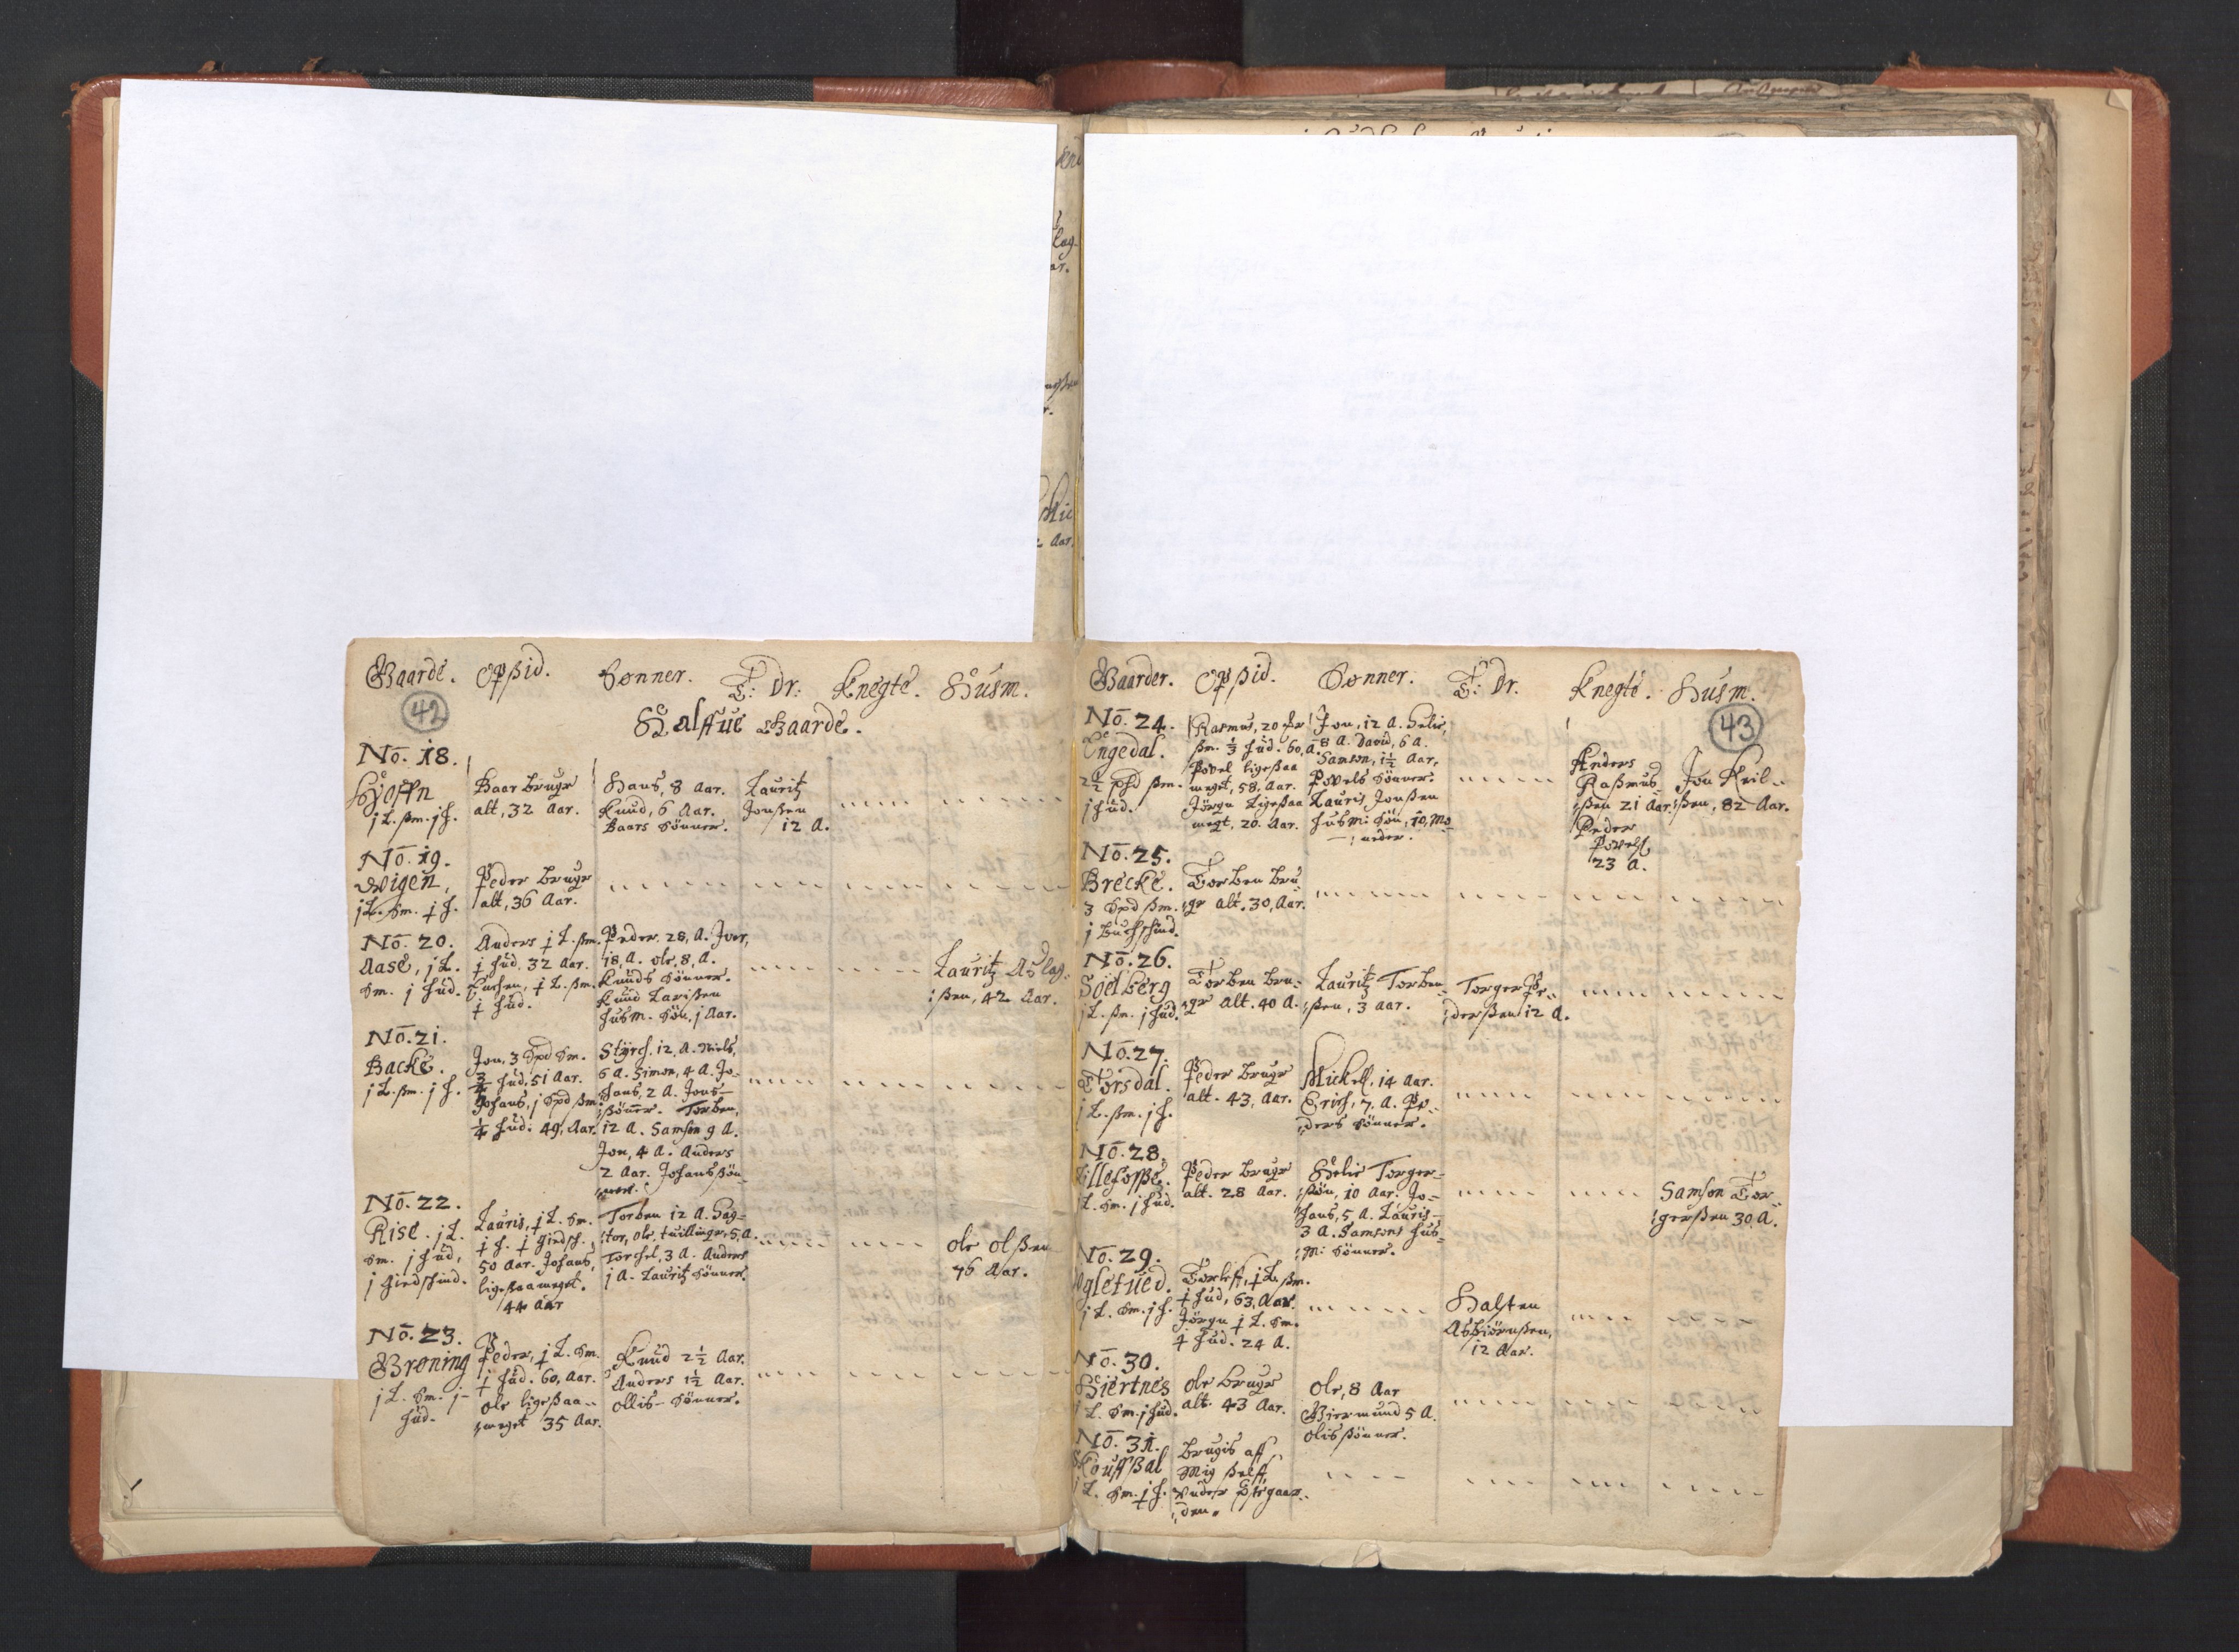 Gaarde. Opßid. Sønner. T: Dr: Knegte. Husm.
42
Halffue Gaarde.
No. 18.
j L. ßm. j H.
Baar bruger
alt, 32 Aar.
Hans, 8 Aar.
Knud, 6 Aar.
Baars Sønner.
Lauritz
Jonßen
12 A.
No. 19.
Wigen,
j L. Sm. j H.
Peder bruger
alt, 36 Aar.
No. 20.
Aase, j L.
Sm. j Hud.
Anders ½ L. ßm.
½ Hud. 32 Aar.
½ L. ßm.
½ Hud.
Peder. 28, A. Iver,
18, A. Ole, 8, A.
Knuds Sønner.
Knud Larißen
Husm. Søn, j Aar.
Lauritz Aslag-
ßen, 42 Aar.
No. 21.
Backe.
j L. ßm. j H.
Jon, 3 Spd Sm.
¾ Hud, 51 Aar.
Johans, j Spd ßm.
¼ Hud. 49, Aar.
Styrch. 12, A. Niels,
6 A. Simon, 4 A. Jo-
hans, 2 A. Jons-
ßønner. Torben,
12 A. Samson 9 A.
Jon, 4 A. Anders
2 Aar. Johansßøn-
ner.
No. 22.
Rise. j L.
Sm. j Hud,
j Giedshind.
Lauris, ½ L. Sm.
½ H. ½ Giedsh.
50 Aar. Johans,
ligeßaa meget.
44 Aar
Torben 12 A. Hag-
tor, Ole, tuillinger, 5 A.
Torchel, 3 A. Anders
j A. Lauritz Sønner.
Ole Olßen
76 Aar.
No. 23.
Grøning
j L. Sm. j-
Hud.
Peder, ½ L. Sm.
½ Hud. 60, Aar.
Ole ligeßaa-
meget 35 Aar.
Knud 2½ Aar.
Anders 1½ Aar.
Ollis- Sønner.
Gaarder. Opßid. Sønner. T: Dr. Knegte. Husm.
43
No. 24.
Engedal.
2½ phd ßm.
j Hud.
Rasmus, 20
ßm. ⅓ Hud. 60, A.
Povel ligeßaa
meget, 58, Aar.
Jörgen Ligeßaa
megt, 20. Aar.
Jon, 12 A. Helie,
8 A. David, 6 A.
Samson, 1½ Aar,
Povels Sønner.
Lauris Jonßen
Husm: Søn, 10, Mo
neder.
Anders
Raßmus
ßen 21 Aar.
Peder
Povelß.
23 A.
Jon Keil-
ßen, 82 Aar.
No. 25.
Brecke.
3 Spd ßm.
j Buchshind.
Torben bru-
ger alt. 30, Aar.
No. 26.
Soelberg
j L. ßm. j Hud.
Torben bru-
ger alt. 40 A.
Lauritz Torben
ßen, 3 Aar.
Torger Pe-
derßen 12 A.
No. 27.
Torsdal.
j L. ßm. j H.
Peder bruger
alt. 43, Aar.
Mickell, 14 Aar.
Erich, 7, A. Pe-
ders Sønner.
No. 28.
Lillefoße.
L. Sm. j Hud.
Peder bruger
alt. 28 Aar.
Helie Torger-
ßøn, 10 Aar. Jo-
hans, 5 A. Lauris-
3 A. Samsons Hus-
m: Sønner.
Samson Tor-
gerßen 30 A.
No. 29.
j L. Sm. j H.
Torleff, ½ L. ßm.
½ Hud, 63, Aar.
Jörgen ½ L. Sm.
½ Hud. 24 A.
Halsten
Asbiörnßen,
12 Aar.
No. 30.
Hiertnes
j L. Sm. j Hud.
Ole bruger
alt. 43 Aar.
Ole, 8 Aar
Giermund 5 A.
Olis ßønner.
No. 31.
Skouffßal
j L. Sm. j H.
Brugis aff
Mig ßelff,
under
den.